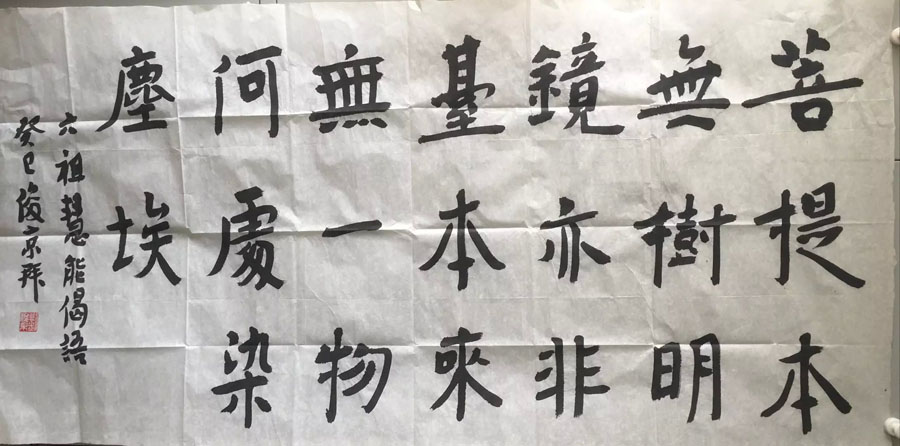 菩提本
無樹明
鏡亦非
臺本來
無一物
何處染
塵埃
六祖慧能偈語
癸巳俊京拜